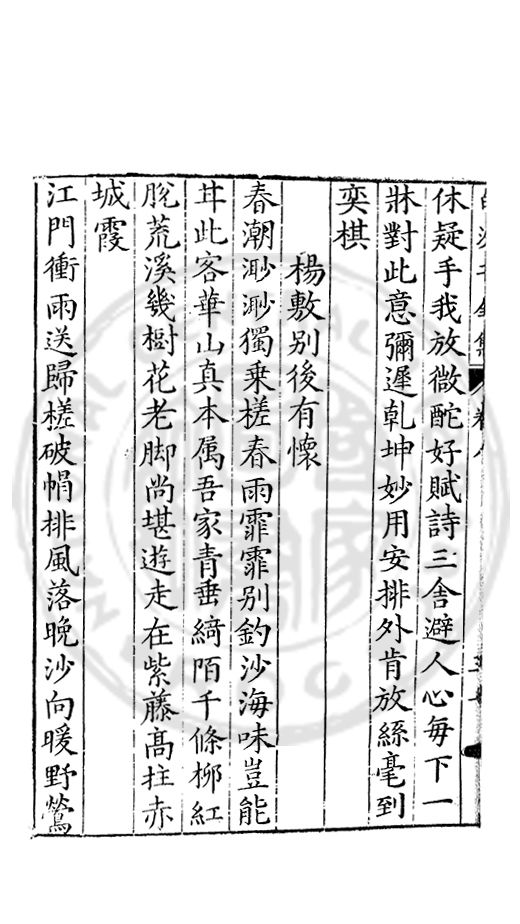 休疑手我放微酡好賦詩三舍避人心每下一
牀對此意彌遲乾坤妙用安排外肯放絲毫到
奕棋
楊敷别後有懷
春潮渺渺獨乗槎春雨霏霏别釣沙海味豈能
芉此客華山真本属吾家青垂綺陌千條柳紅
脫荒溪幾樹花老脚尚堪遊走在紫藤髙拄赤
城霞
江門衝雨送歸槎破帽排風落晚沙向暖野鶯